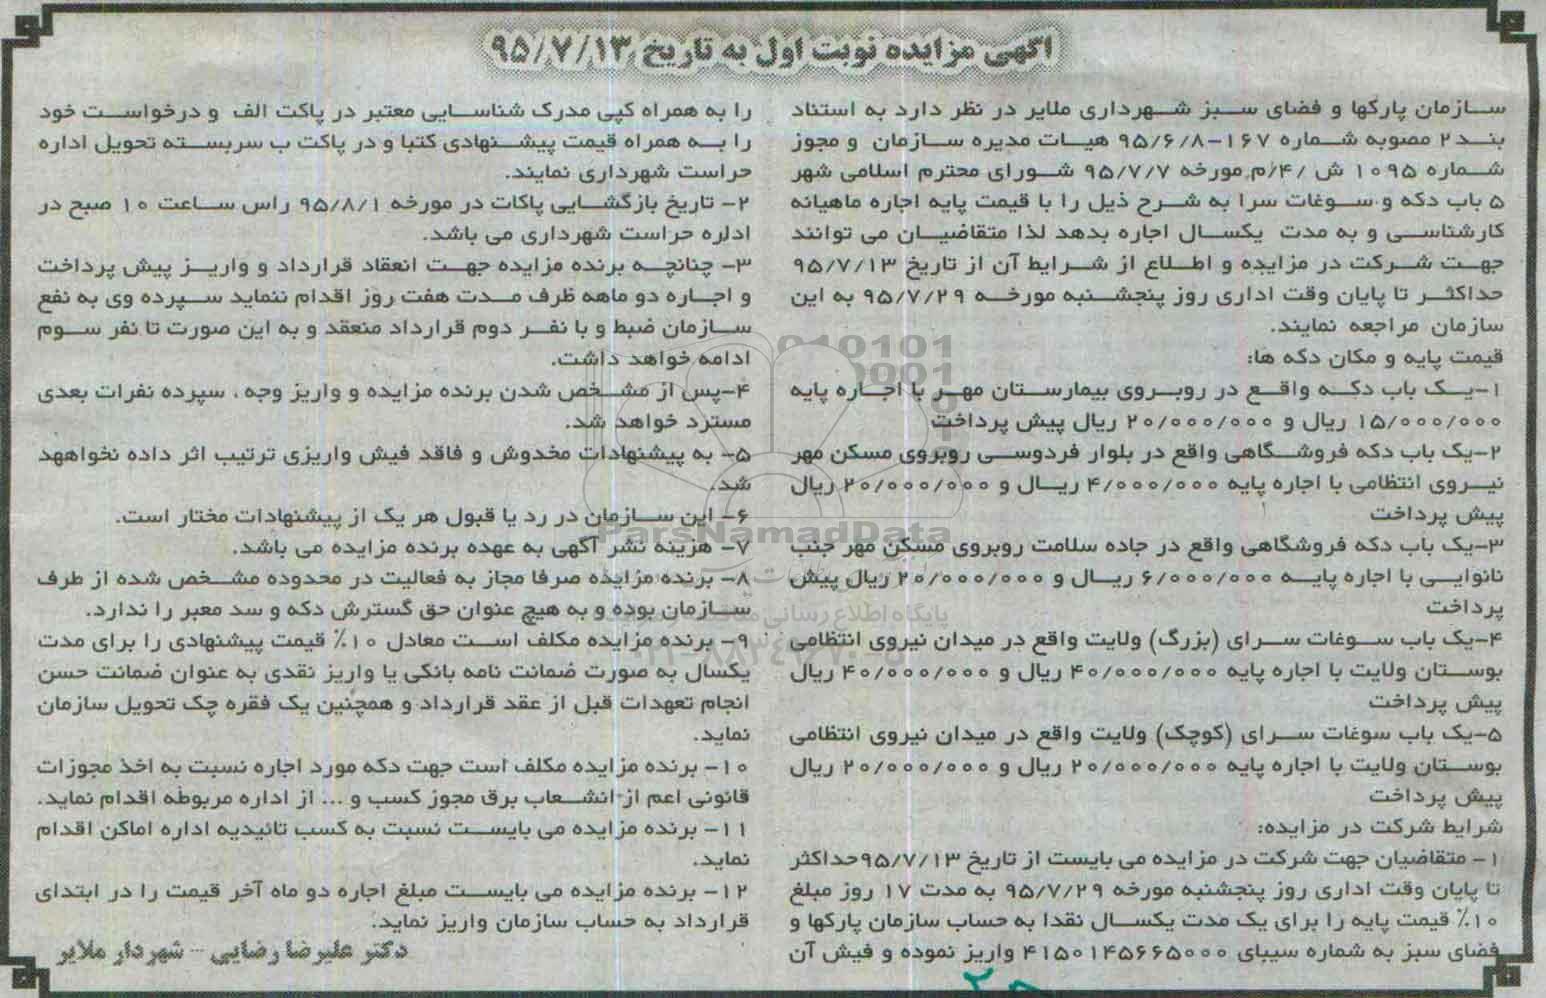 آگهی مزایده نوبت اول به تاریخ ۹۵/۷/۱۳
سازمان پارکها و فضای سبز شهرداری ملایر در نظر دارد به استناد
بند ۲ مصوبه شماره ۱۶۷-۹۵/۶/۸ هیات مدیره سازمان و مجوز
شماره ۱۰۹۵ ش /۴/م مورخه ۹۵/۷/۷ شورای محترم اسلامی شهر
۵ باب دکه و سوغات سرا به شرح ذیل را با قیمت پایه اجاره ماهیانه
کارشناسی و به مدت یکسال اجاره بدهد لذا متقاضیان می توانند
جهت شرکت در مزایده و اطلاع از شرایط آن از تاریخ ۹۵/۷/۱۳
حداکثر تا پایان وقت اداری روز پنجشنبه مورخه ۹۵/۷/۲۹ به این
سازمان مراجعه نمایند.
قیمت پایه و مکان دکه ها:
۱-یک باب دکه واقع در روبروی بیمارستان مهر با اجاره پایه
۱۵/۰۰۰/۰۰۰ ریال و ۲۰/۰۰۰/۰۰۰ ریال پیش پرداخت
۲-یک باب دکه فروشگاهی واقع در بلوار فردوسی روبروی مسکن مهر
نیروی انتظامی با اجاره پایه ۴/۰۰۰/۰۰۰ ریال و ۲۰/۰۰۰/۰۰۰ ریال
پیش پرداخت
۳-یک باب دکه فروشگاهی واقع در جاده سلامت روبروی مسکن مهر جنب
نانوایی با اجاره پایه ۶/۰۰۰/۰۰۰ ریال و ۲۰/۰۰۰/۰۰۰ ریال پیش
پرداخت
۴-یک باب سوغات سرای (بزرگ) ولایت واقع در میدان نیروی انتظامی
بوستان ولایت با اجاره پایه ۴۰/۰۰۰/۰۰۰ ریال و ۴۰/۰۰۰/۰۰۰ ریال
پیش پرداخت
۵-یک باب سوغات سرای (کوچک) ولایت واقع در میدان نیروی انتظامی
بوستان ولایت با اجاره پایه ۲۰/۰۰۰/۰۰۰ ریال و ۲۰/۰۰۰/۰۰۰ ریال
پیش پرداخت
شرایط شرکت در مزایده:
۱- متقاضیان جهت شرکت در مزایده می بایست از تاریخ ۹۵/۷/۱۳حداکثر
تا پایان وقت اداری روز پنجشنبه مورخه ۹۵/۷/۲۹ به مدت ۱۷ روز مبلغ
۱۰٪ قیمت پایه را برای یک مدت یکسال نقدا به حساب سازمان پارکها و
فضای سبز به شماره سیبای ۴۱۵۰۱۴۵۶۶۵۰۰۰ واریز نموده و فیش آن
را به همراه کپی مدرک شناسایی معتبر در پاکت الف و درخواست خود
را به همراه قیمت پیشنهادی کتبا و در پاکت ب سربسته تحویل اداره
حراست شهرداری نمایند.
۲- تاریخ بازگشایی پاکات در مورخه ۹۵/۸/۱ راس ساعت ۱۰ صبح در
اداره حراست شهرداری می باشد.
۳- چنانچه برنده مزایده جهت انعقاد قرارداد و واریز پیش پرداخت
و اجاره دو ماهه ظرف مدت هفت روز اقدام ننماید سپرده وی به نفع
سازمان ضبط و با نفر دوم قرارداد منعقد و به این صورت تا نفر سوم
ادامه خواهد داشت.
۴-پس از مشخص شدن برنده مزایده و واریز وجه ، سپرده نفرات بعدی
مسترد خواهد شد.
۵- به پیشنهادات مخدوش و فاقد فیش واریزی ترتیب اثر داده نخواههد
شد.
۶- این سازمان در رد یا قبول هر یک از پیشنهادات مختار است.
۷- هزینه نشر آگهی به عهده برنده مزایده می باشد.
۸- برنده مزایده صرفا مجاز به فعالیت در محدوده مشخص شده از طرف
سازمان بوده و به هیچ عنوان حق گسترش دکه و سد معبر را ندارد.
۹- برنده مزایده مکلف است معادل ۱۰٪ قیمت پیشنهادی را برای مدت
یکسال به صورت ضمانت نامه بانکی یا واریز نقدی به عنوان ضمانت حسن
انجام تعهدات قبل از عقد قرارداد و همچنین یک فقره چک تحویل سازمان
نماید.
۱۰- برنده مزایده مکلف است جهت دکه مورد اجاره نسبت به اخذ مجوزات
قانونی اعم از انشعاب برق مجوز کسب و ... از اداره مربوطه اقدام نماید.
۱۱- برنده مزایده می بایست نسبت به کسب تائیدیه اداره اماکن اقدام
نماید.
۱۲- برنده مزایده می بایست مبلغ اجاره دو ماه آخر قیمت را در ابتدای
قرارداد به حساب سازمان واریز نماید.
دکتر علیرضا رضایی - شهردار ملایر
ParsNamadData